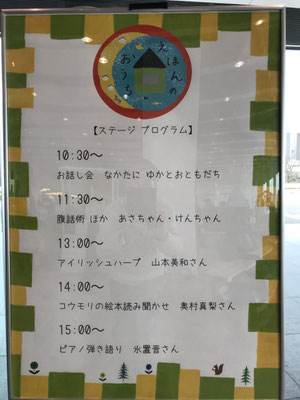 えほんの
おうち
【ステージ プログラム】
10:30～
お話し会 なかたに ゆかとおともだち
11:30～
腹話術 ほか あさちゃん・けんちゃん
13:00～
アイリッシュハープ 山本美和さん
14:00～
コウモリの絵本読み聞かせ 奥村真梨さん
15:00～
ピアノ弾き語り 氷置晋さん